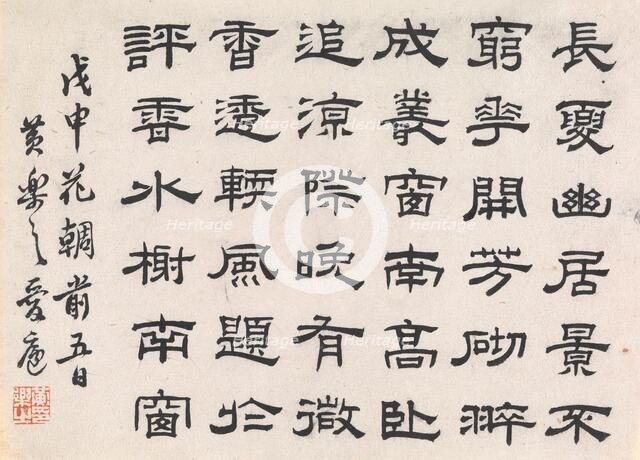 長夏幽居景不
窮華開芳砌翠
成叢窗南高臥
追涼際晚有微
香透輭風題於
評香水榭南窗
戊申花朝前五日
黃樂之愛廬
Heritage
Heritage
Heritage
Heritage